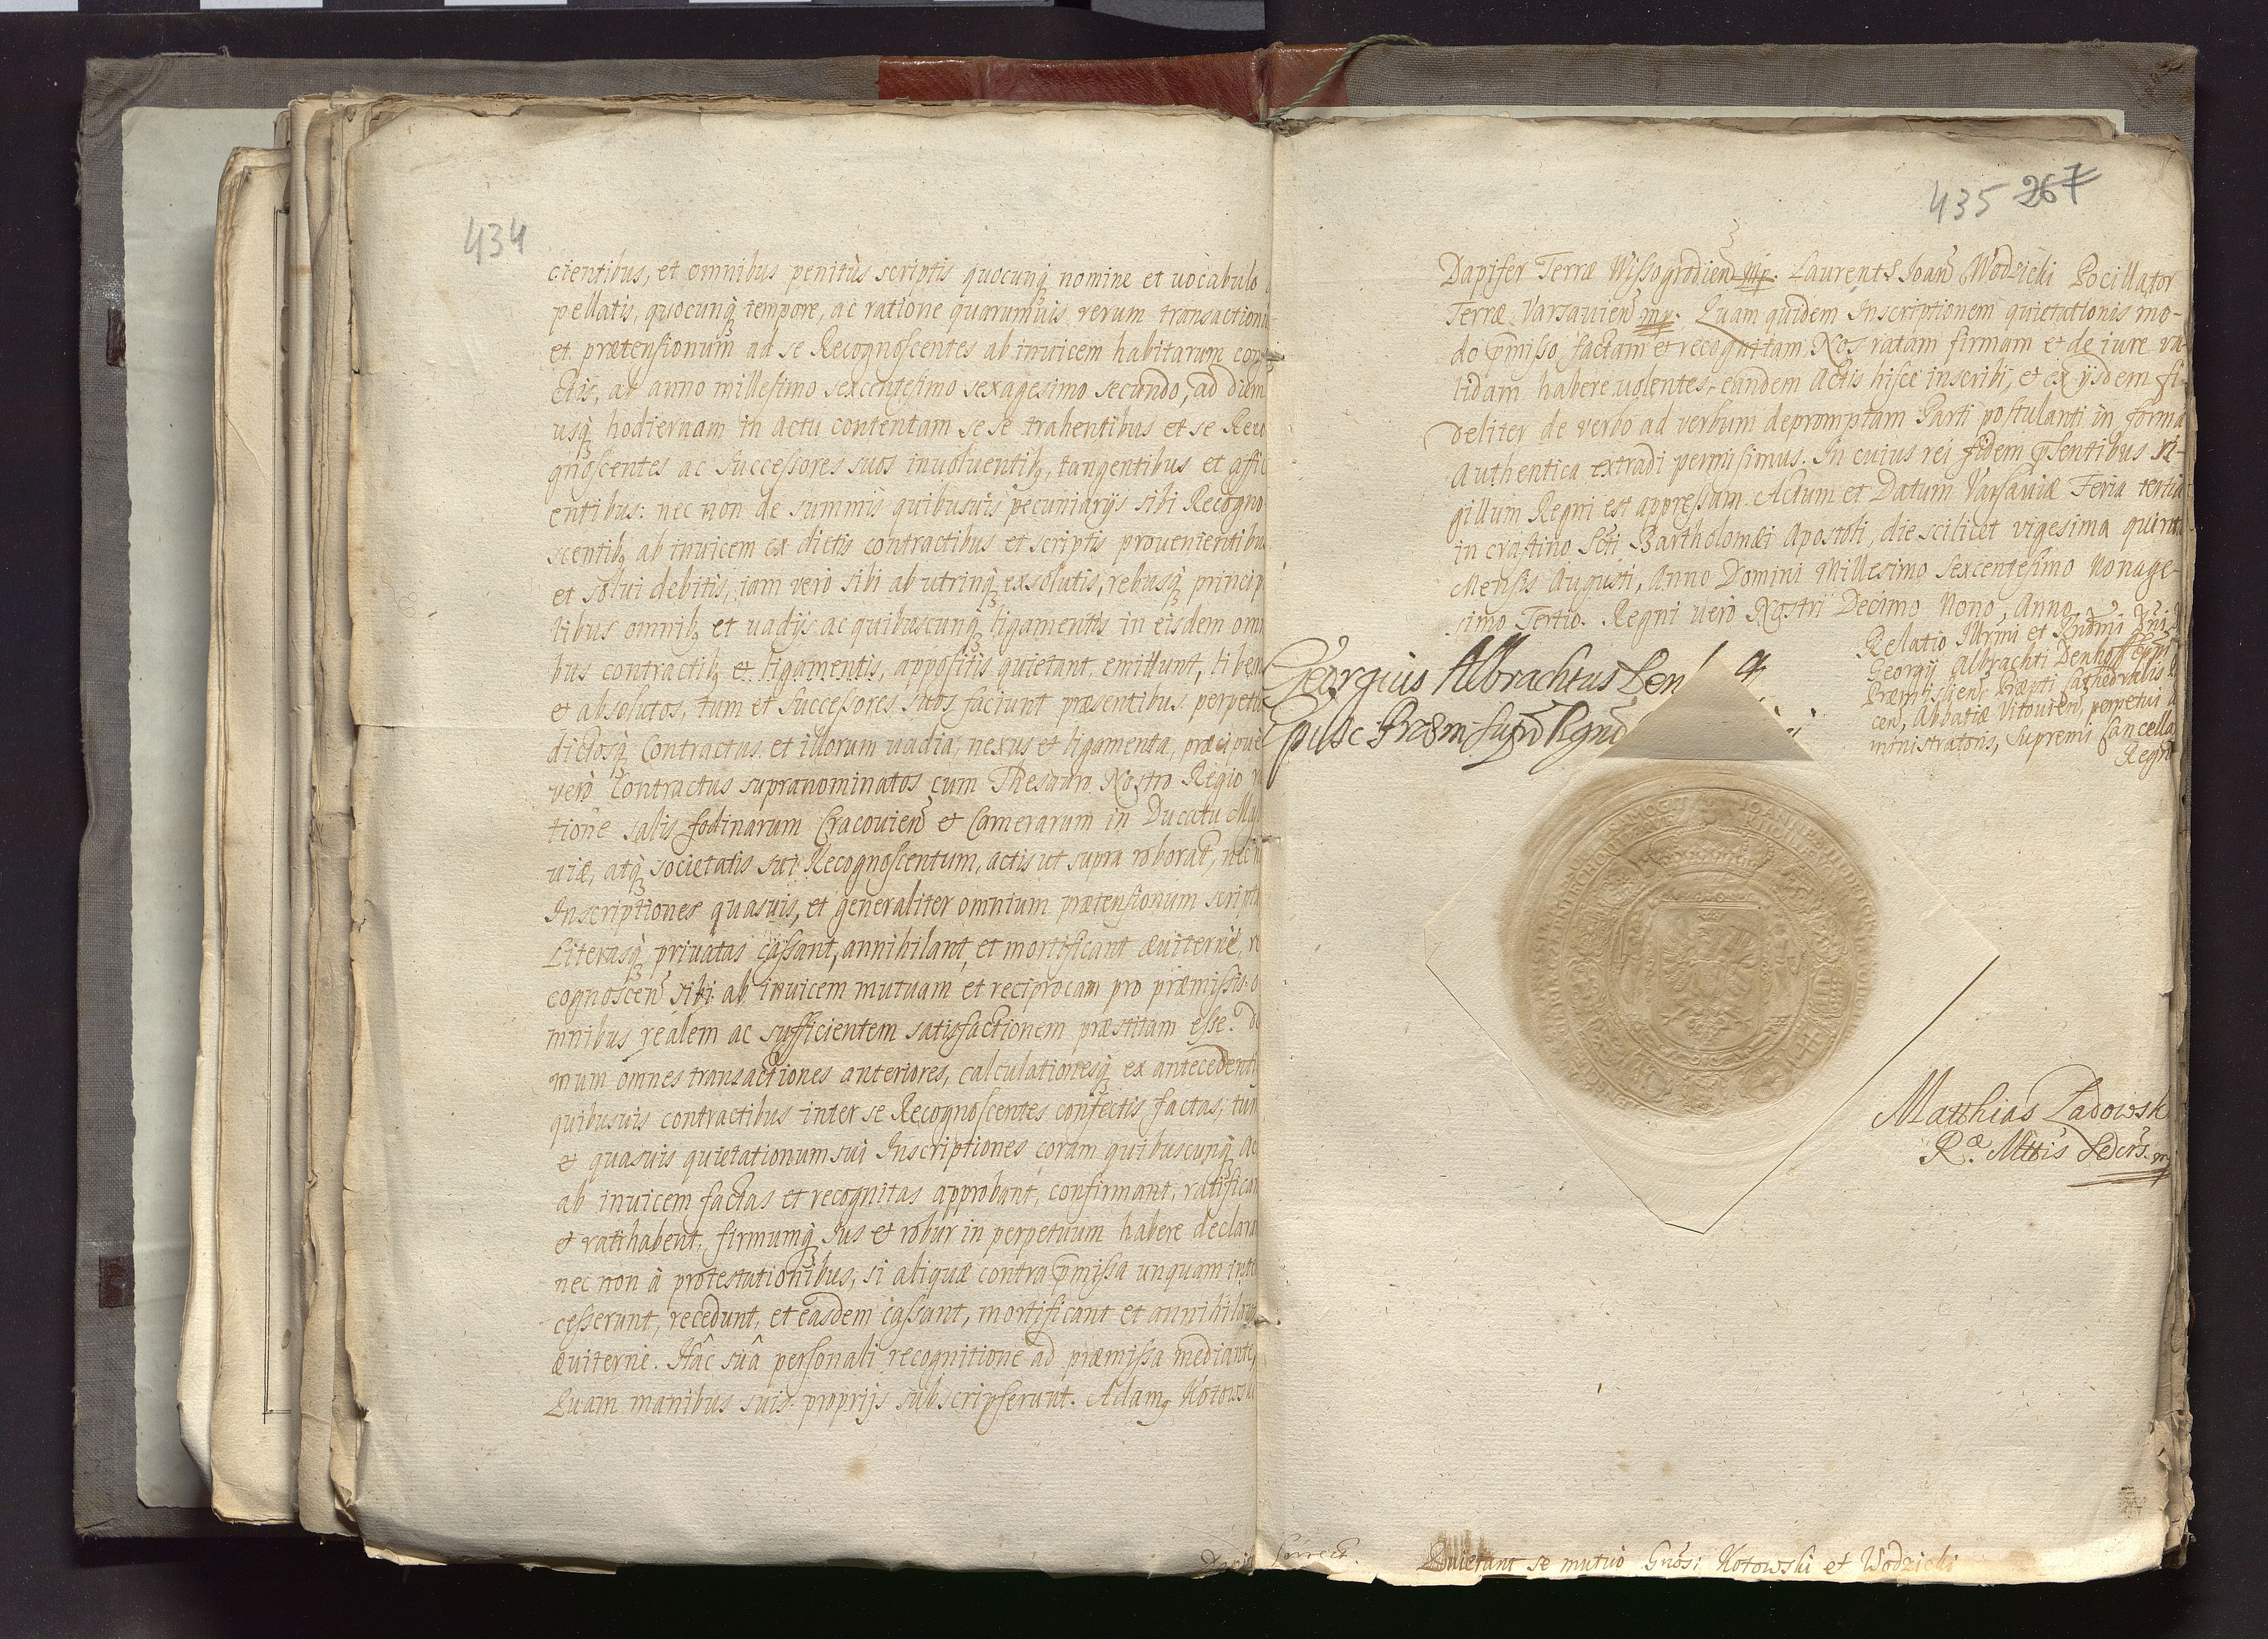 434
cientibus, et omnibus penitùs scriptis quocunq; nomine et uocabulo
pellatis, quocunq; tempore, ac ratione quarumuis rerum transaction
et prætensionum ad se Recognoscentes ab inuicem habitarum con
ctis, ab anno millesimo sexcentesimo sexagesimo secundo, ad diem
usq; hodiernam in actu contentam se se trahentibus et se Reco
gnoscentes ac Successores suos inuoluentib; tangentibus et affic
entibus: nec non de summis quibusuis pecuniarijs sibi Recogno
scentib; ab inuicem ex dictis contractibus et scriptis prouenientibu
et solui debitis, iam verò sibi ab utrinq; exsolutis, rebusq; princip
libus omnib; et uadijs ac quibuscunq; ligamentis in eisdem omn
bus contractib; et ligamentis, appositis quietant, emittunt, libero
et absolutos, tum et Successores suos faciunt præsentibus perpetu
dictosq; Contractus et illorum uadia, nexus et ligamenta, præcipuè
verò Contractus supranominatos cum Thesauro Nostro Regio
tione salis fodinarum Cracouien̄ et Camerarum in Ducatu Maz
uiæ, atq; societatis sui Recognoscentum, actis ut supra roborat, nec
Inscriptiones quasuis, et generaliter omnium prætensionum script
Literasq; priuatas cassant, annihilant, et mortificant æuiternè, re
cognoscen̄ sibi ab inuicem mutuam et reciprocam pro præmissis o
mnibus reálem ac sufficientem satisfactionem præstitam esse. De
mum omnes transactiones anteriores, calculationesq; ex antecedenti
quibusuis contractibus inter se Recognoscentes confectis factas, tum
et quasuis quietationum sui Inscriptiones coram quibuscunq; Ac
ab inuicem factas et recognitas approbant, confirmant, ratifican
et ratihabent, firmumq; Ius et robur in perpetuum habere declara
nec non à protestationibus, si aliquæ contra p̄missa unquam inte
cesserunt, recedunt, et easdem cassant, mortificant et annihilant
æuiternè. Hâc suâ personali recognitione ad præmissa mediante,
Quam manibus suis proprijs subscripserunt. Adam; Kotowski
Dapi
435 267
Dapifer Terræ Wissogrodien̄ mp. Laurent; Ioan̄ Wodzicki Pocillator
Terræ Varsauien̄ mp. Quam quidem Inscriptionem quietationis mo-
do p̄misso factam et recognitam, Nos ratam firmam et de iure va-
lidam habere uolentes, eandem Actis hisce inscribi, et ex ijsdem fi-
deliter de verbo ad verbum depromptam Parti postulanti in forma
Authentica extradi permisimus. In cuius rei fidem p̄sentibus si-
gillum Regni est appressum. Actum et Datum Varsauiæ Feria tertia
in crastino S̃cti Bartholomæi Apostoli, die scilicet vigesima quinta
Mensis Augusti, Anno Domini Millesimo Sexcentesimo Nonage-
simo Tertio. Regni verò Nostri Decimo Nono, Anno.
Relatio Illr̃mi et Rnd̃mi Dn̄i
Georgij Albrachti Denhoff Ep̃i
Præmislien̄ Præpti Cathedralis
cen̄, Abbatiæ Vitouien̄, perpetui
ministratoris, Supremi Cancella
Regni
Georgius Albrachtus Den
Matthias Ladowsk
R.æ Mttis Secrs. mp
Correct.
Quietant se mutuo Gn̄osi Kotowski et Wodzicki